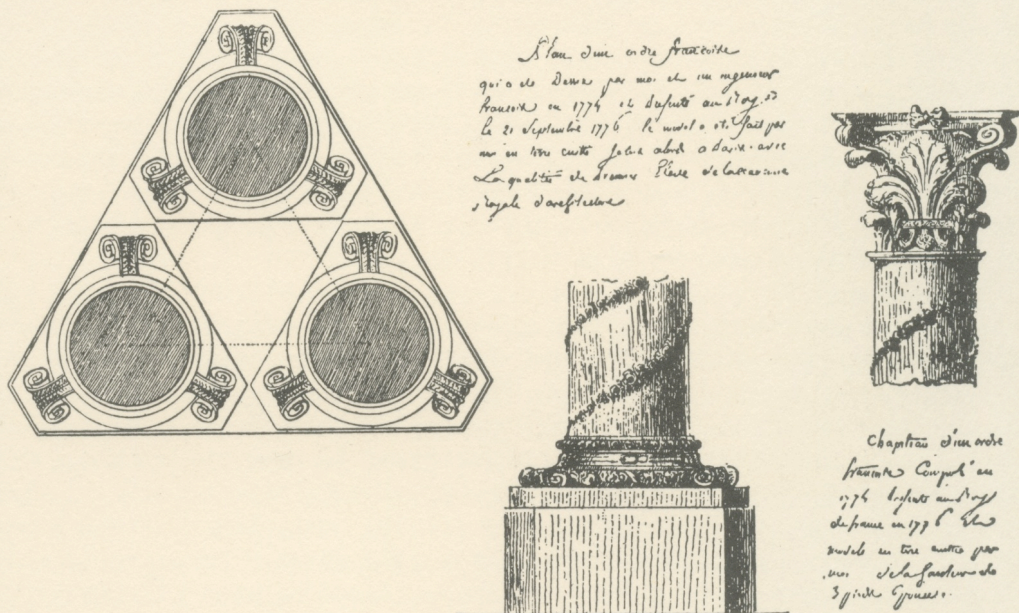 Plan d'un ordre francoise
qui a ete Dessine par moi et un ingenieur
francoise en 1774 et au Roy
le 21 Septembre 1776 le model a ete fait par
moi en tere cuitte a Paris avec
La qualité de premier Eleve de
Royale d'architecture
Chapiteau d'un ordre
francoise Composé en
1774 au Roy
de france en 1776 et le
modele en tere cuitte par
moi de la hauteur de
3 pieds 6 pouces.